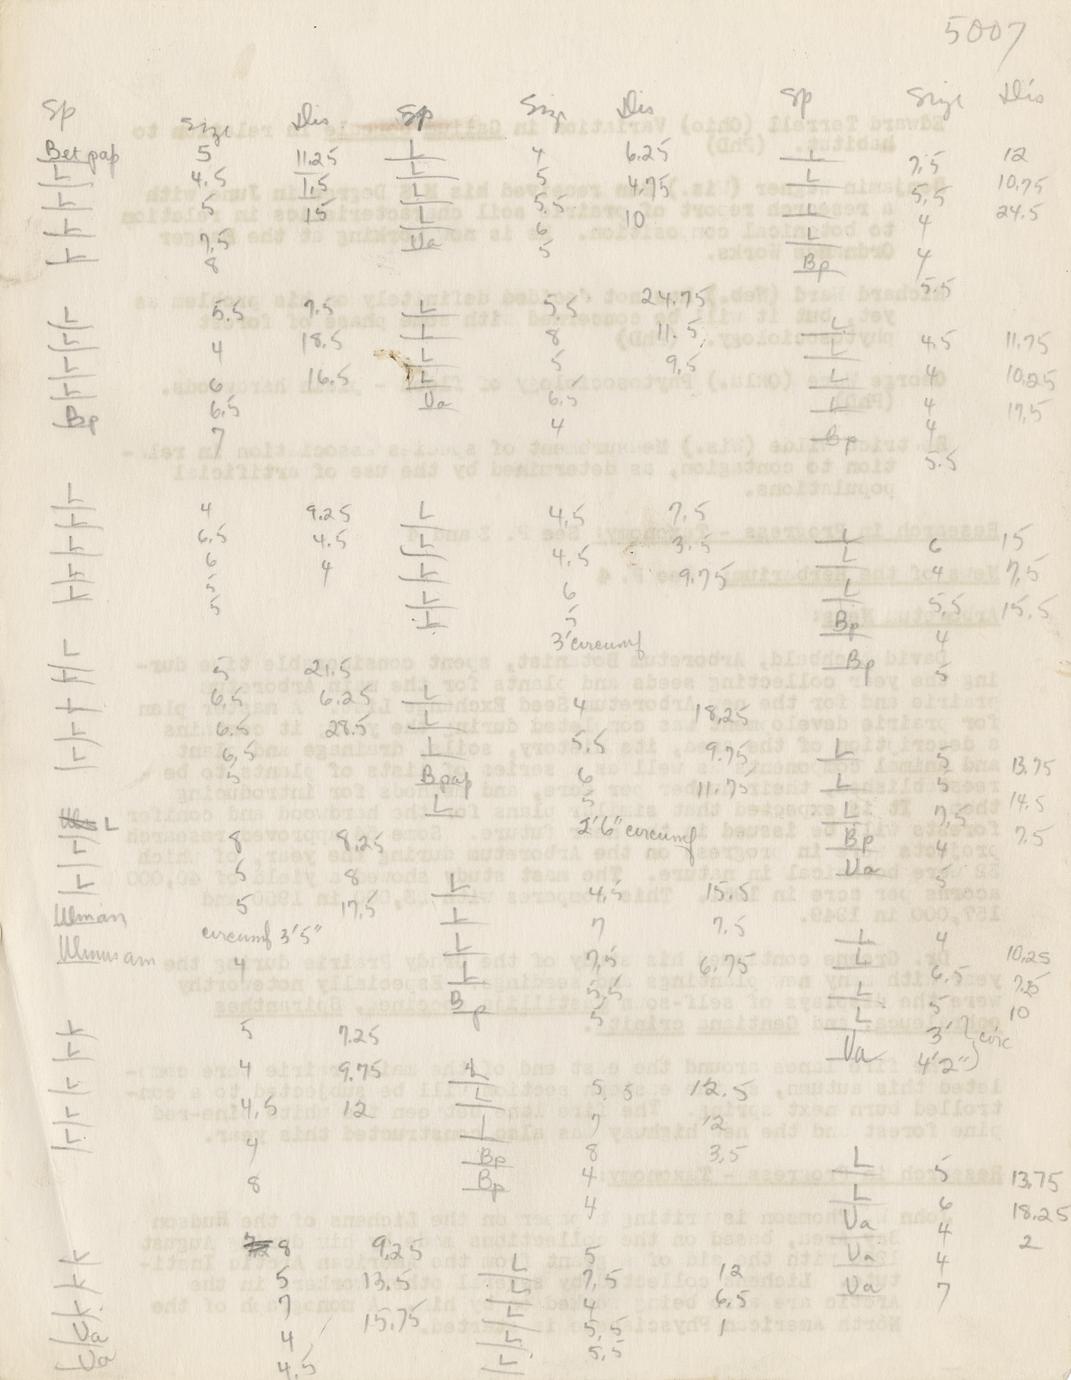 5007
Sp Size Dis Sp Size Dis Sp Size Dis
Bet pap 5 11.25 L 4 6.25 L 7.5 12
L 4.5 1.5 L 5 4.75 L 5.5 10.75
L 5 15 L 5.5 10 L 4 24.5
L 7.5 Ua 6 L 4
L 8 5 Bp 5.5
L 5.5 7.5 L 5.5 24.75 L 4.5 11.75
L 4 18.5 L 8 11.5 L 4 10.25
L 6 16.5 L 5 9.5 L 4 17.5
L 6.5 L 6.5 L 4
Bp 7 Ua 4 Bp 5.5
L 4 9.25 L 4.5 7.5 L 6 15
L 6.5 4.5 L 4.5 3.5 L 4 7.5
L 6 4 L 6 9.75 L 5.5 15.5
L 5 L 5 Bp 4
L 5 L 3' circumf Bp 5
L 5 21.5 L 4 18.25 L 5 13.75
L 6.5 6.25 L 5.5 9.75 L 5 14.5
L 6.5 28.5 L 6 11.75 L 7.5 7.5
L 6.5 B pap 5 Bp 4
L 5 L 2'6" circumf Ua 5
L 8 8.25 L 4.5 15.5 L 4 10.25
L 5 8 L 7 7.5 L 6.5 7.25
L 5 17.5 L 7.5 6.75 L 5 10
Ulm am circumf 3'5" L 5.5 L 3' } circ
Ulmus am 4 Bp 5 Ua 4'2"
L 5 7.25 L 5.5 12.5 L 5 13.75
L 4 9.75 L 7 12 L 6 18.25
L 4.5 12 L 8 3.5 Ua 4 2
L 4 Bp 4 Ua 4
L 8 Bp 4 Ua 7
L 8 9.25 L 5 12
L 5 13.5 L 7.5 6.5
L 7 15.75 L 4 1
Ua 4 L 5.5
Ua 4.5 L 5.5